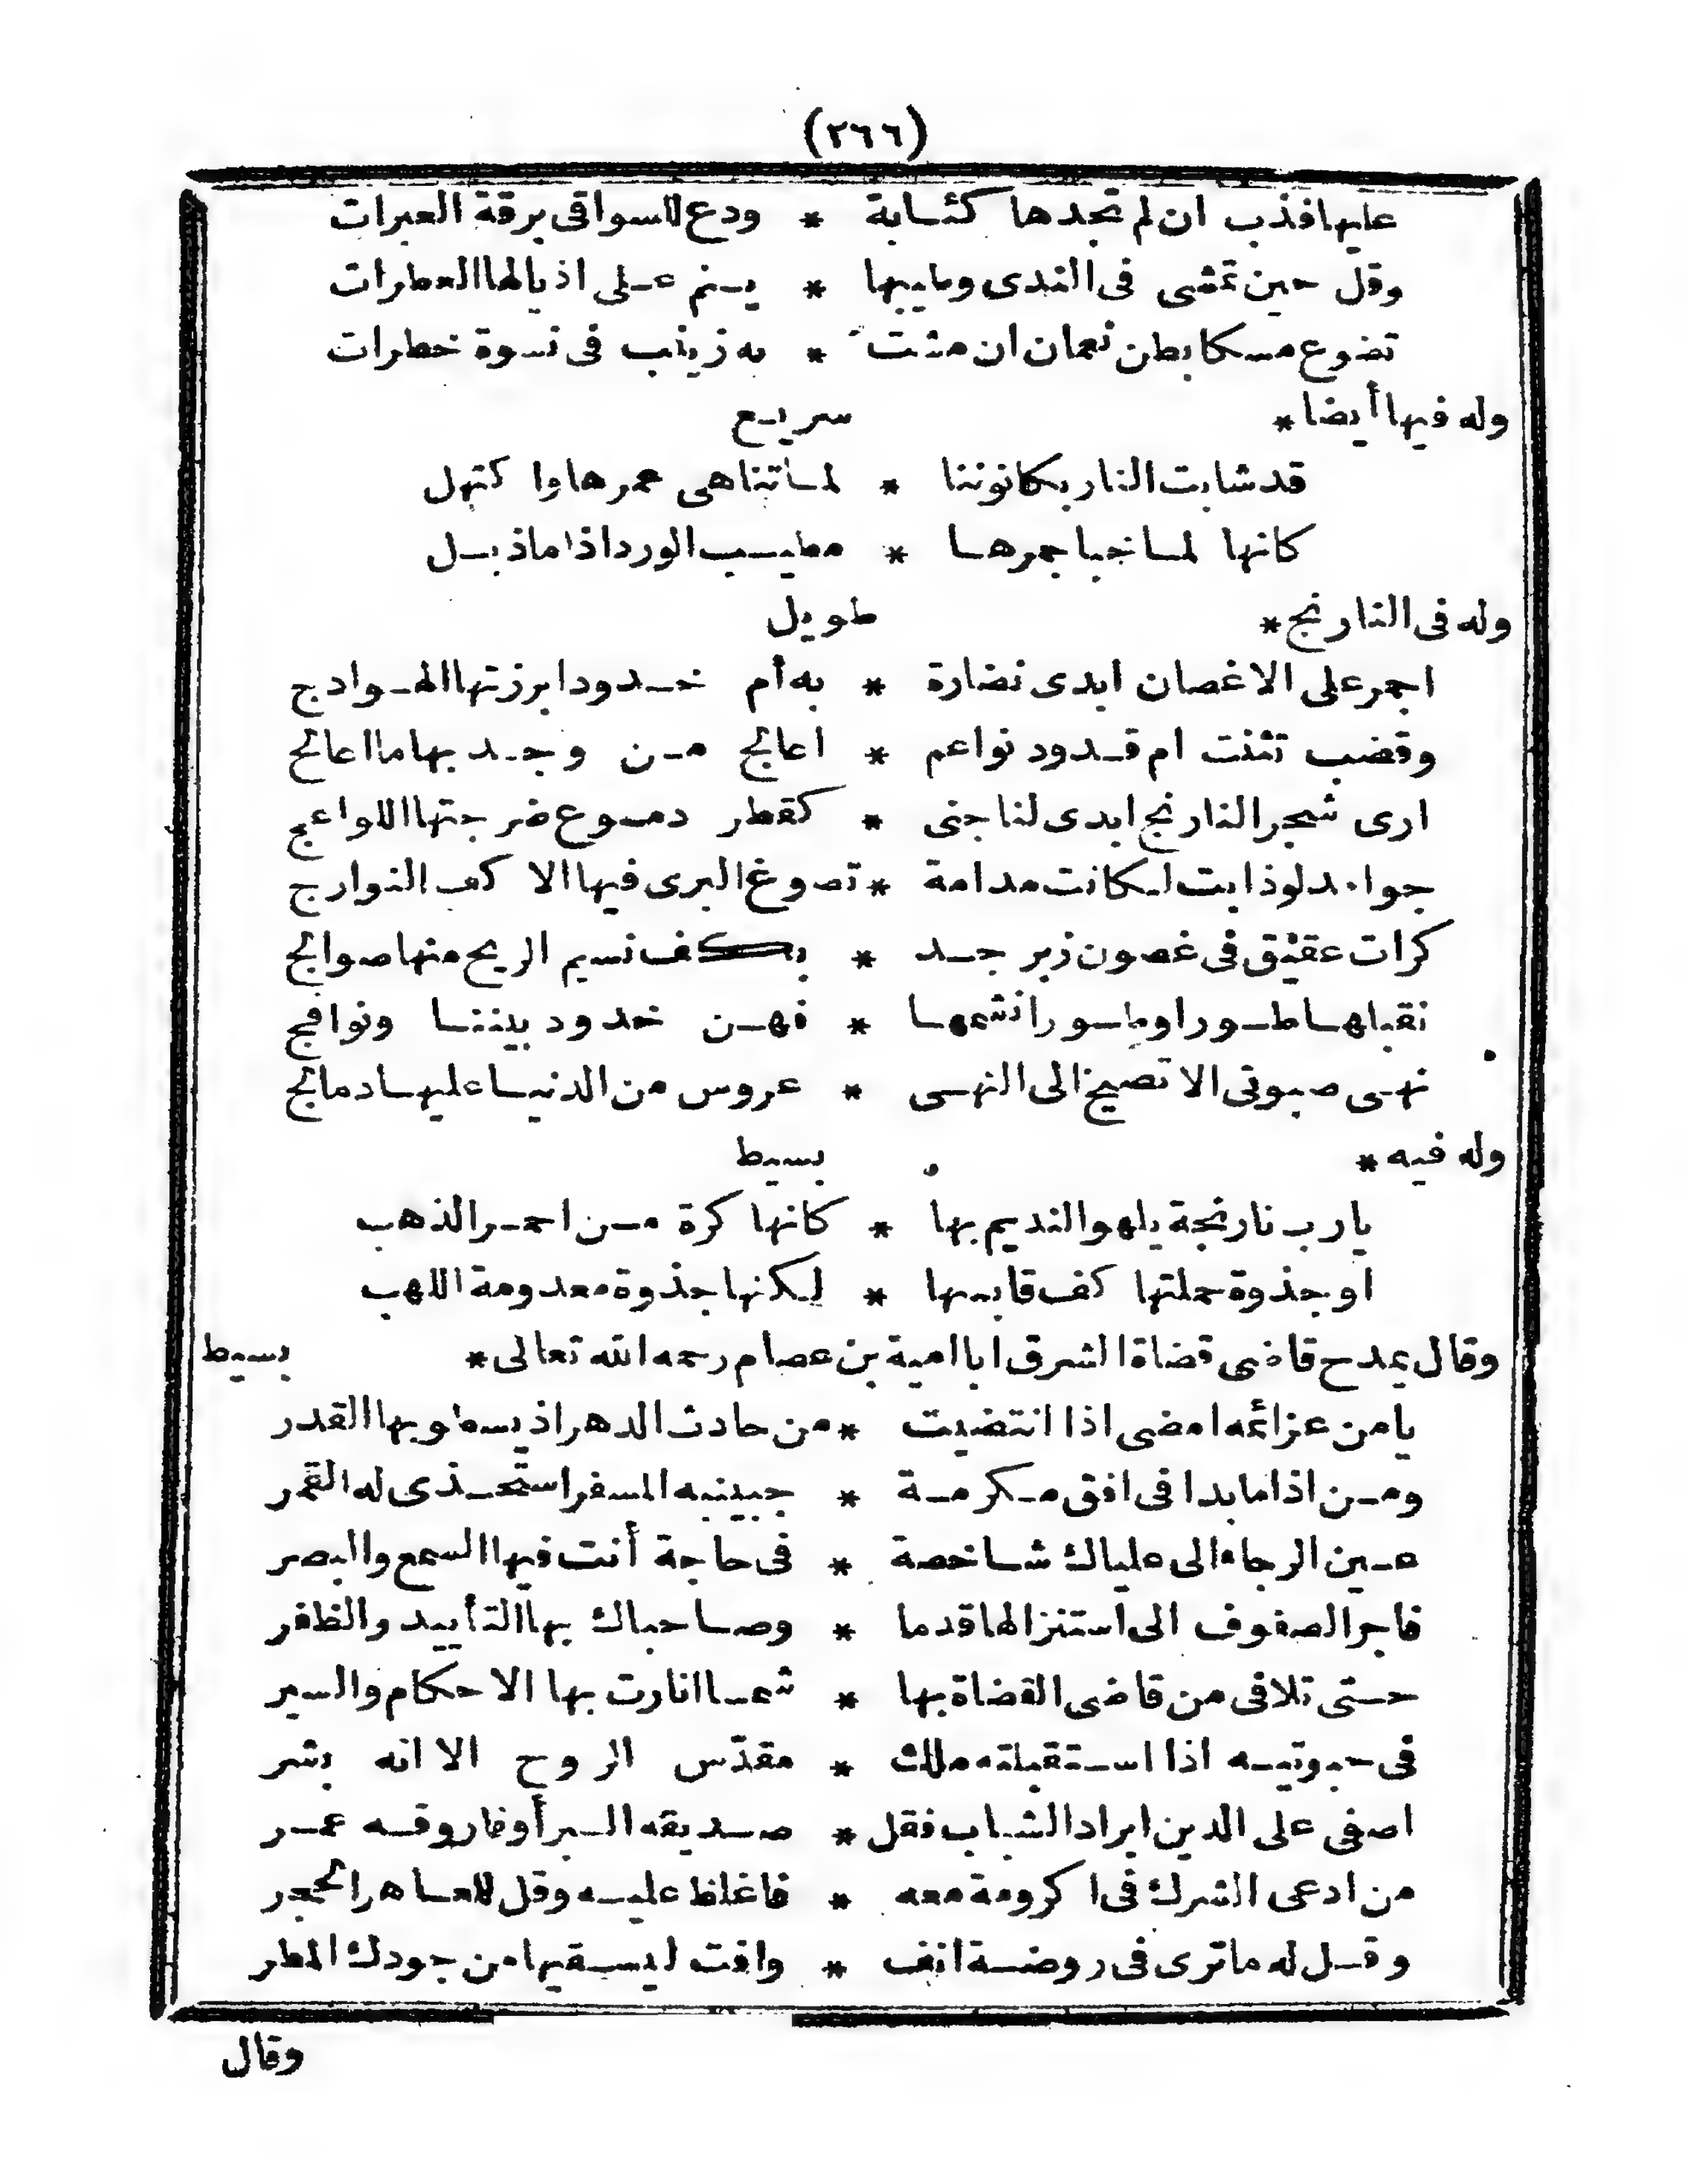 (٢٦٦)
عليها فذب ان لم تجدها كئابة * ودع للسواقى برقة العبرات
وقل حين تمشى فى الندى وطيبها * ينم على اذيالها العطرات
تضوع مسكا بطن نعمان ان مشت * به زينب فى نسوة خطرات
وله فيها أيضا * سريع
قد شابت النار بكانوننا * لما تناهى عمرها واكتهل
كانها لما خبا جمرها * مطيب الورد اذا ما ذبل
وله فى النارنج * طويل
اجمر على الاغصان ابدى نضارة * به أم خدود ابرزتها الهوادج
وقضب تثنت ام قدود نواعم * اعالج من وجد بها ما اعالج
ارى شجر النارنج ابدى لنا جنى * كقطر دموع ضرجتها اللواعج
جوامد لو ذابت لكانت مدامة * تصوغ البرى فيها الا كف النوارج
كرات عقيق فى غصون زبرجد * بكف نسيم الريح منها صوالج
نقبلها طورا وطورا نشمها * فهن خدود بيننا ونوافج
نهى صبوتى الا تصيخ الى النهى * عروس من الدنيا عليها دمالج
وله فيه * بسيط
يارب نارنجة يلهو النديم بها * كانها كرة من احمر الذهب
او جذوة حملتها كف قابسها * لكنها جذوة معدومة اللهب
وقال يمدح قاضى قضاة الشرق ابا امية بن عصام رحمه الله تعالى * بسيط
يا من عزائمه امضى اذا انتضيت * من حادث الدهر اذ يسطو بها القدر
ومن اذا ما بدا فى افق مكرمة * جبينه المسفر استخذى له القمر
عين الرجاء الى علياك شاخصة * فى حاجة أنت فيها السمع والبصر
فاجر الصفوف الى استنزالها قدما * وصاحباك بها التأييد والظفر
حتى تلاقى من قاضى القضاة بها * شمسا انارت بها الاحكام والسير
فى حبوتيه اذا استقبلته ملك * مقدّس الروح الا انه بشر
اصفى على الدين ابراد الشباب فقل * صديقه البر أو فاروقه عمر
من ادعى الشرك فى اكرومة معه * فاغلظ عليه وقل للعاهر الحجر
وقل له ما ترى فى روضة انف * وافت ليسقيها من جودك المطر
وقال